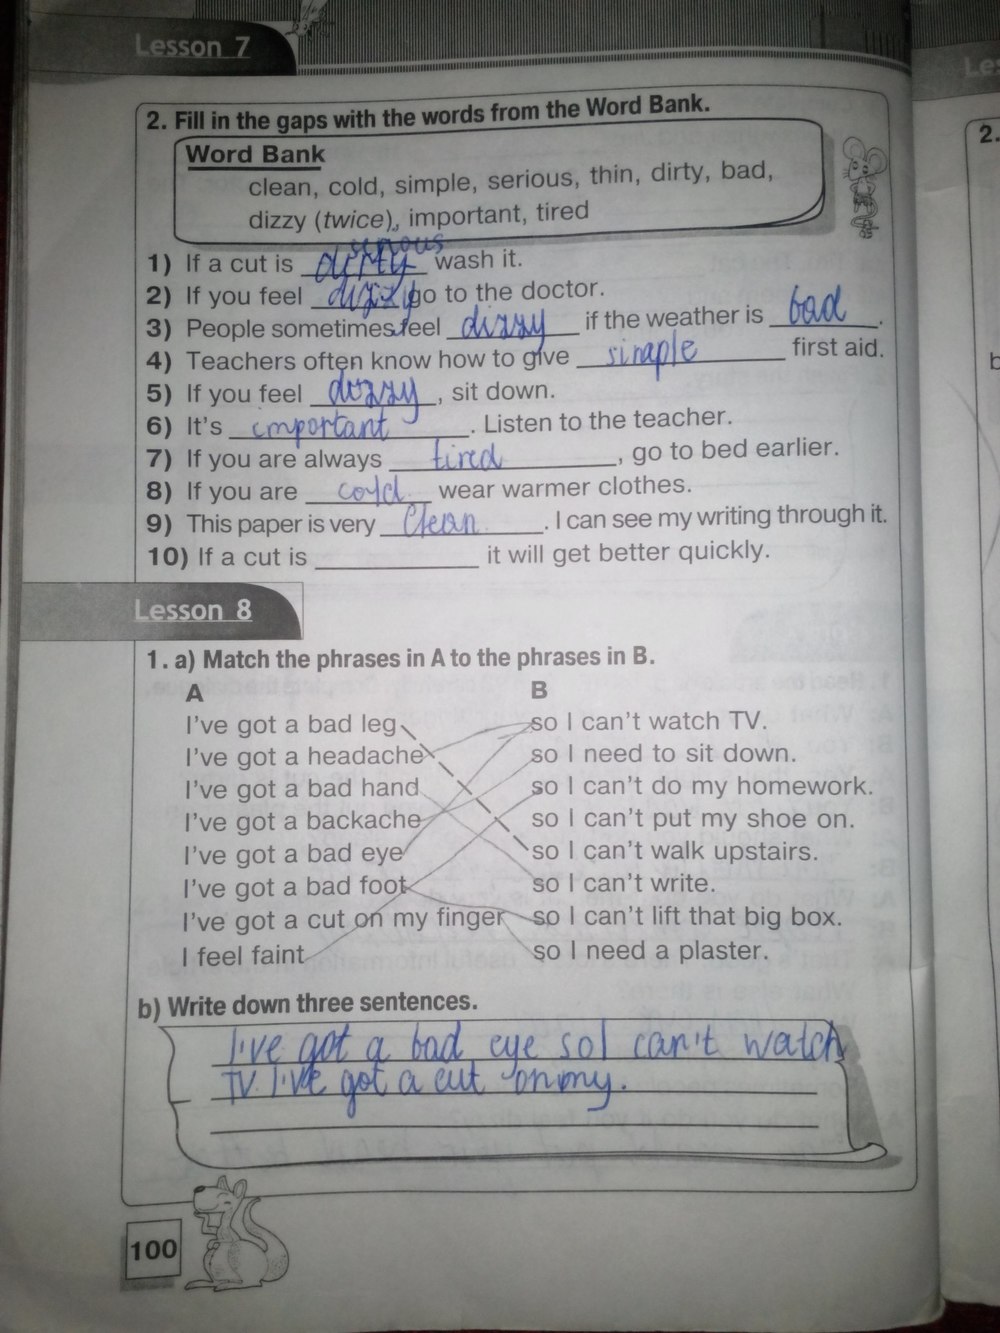 Lesson 7
2. Fill in the gaps with the words from the Word Bank.
Word Bank
clean, cold, simple, serious, thin, dirty, bad,
dizzy (twice), important, tired
serious
1) If a cut is dirty wash it.
2) If you feel dizzy go to the doctor.
3) People sometimes feel dizzy if the weather is bad.
4) Teachers often know how to give simple first aid.
5) If you feel dizzy, sit down.
6) It's important. Listen to the teacher.
7) If you are always tired, go to bed earlier.
8) If you are cold wear warmer clothes.
9) This paper is very clean. I can see my writing through it.
10) If a cut is ____________ it will get better quickly.
Lesson 8
1. a) Match the phrases in A to the phrases in B.
A B
I've got a bad leg so I can't watch TV.
I've got a headache so I need to sit down.
I've got a bad hand so I can't do my homework.
I've got a backache so I can't put my shoe on.
I've got a bad eye so I can't walk upstairs.
I've got a bad foot so I can't write.
I've got a cut on my finger so I can't lift that big box.
I feel faint so I need a plaster.
b) Write down three sentences.
I've got a bad eye so I can't watch
TV. I've got a cut on my.
100
Le
2.